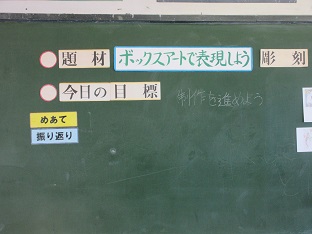 題材 ボックスアートで表現しよう 彫刻
今日の目標 制作を進めよう
めあて
振り返り